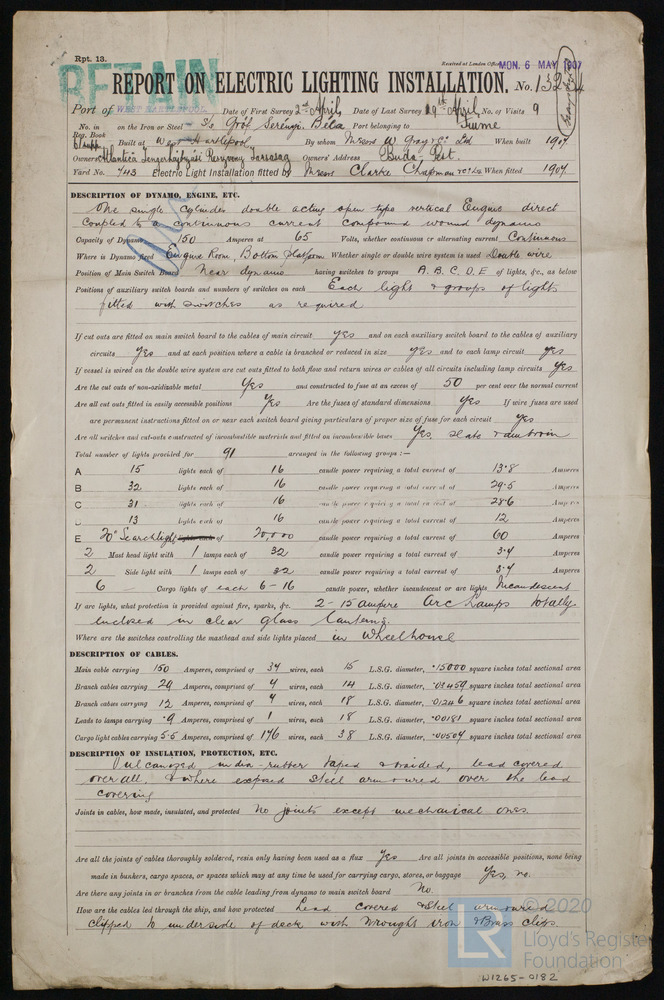 Rpt. 13.
RETAIN
Received at London Office MON. 6 MAY 1907
REPORT ON ELECTRIC LIGHTING INSTALLATION. No. 132
Port of WEST HARTLEPOOL Date of First Survey 2nd April Date of Last Survey 19th April No. of Visits 9
No. in Reg. Book on the Iron or Steel S/S Gróf Serényi Béla Port belonging to Fiume
Built at West Hartlepool By whom Messrs W Gray & Co Ld When built 1907
Owners Atlantica Owners' Address Buda-Pest
Yard No. 743 Electric Light Installation fitted by Messrs Clarke Chapman & Co Ld When fitted 1907
DESCRIPTION OF DYNAMO, ENGINE, ETC.
One single cylinder double acting open type vertical Engine direct
coupled to a continuous current compound wound dynamo
Capacity of Dynamo 150 Amperes at 65 Volts, whether continuous or alternating current Continuous
Where is Dynamo fixed Engine Room, Bottom platform Whether single or double wire system is used Double wire
Position of Main Switch Board Near dynamo having switches to groups A. B. C. D. E of lights, &c., as below
Positions of auxiliary switch boards and numbers of switches on each Each light & groups of lights
fitted with switches as required
If cut outs are fitted on main switch board to the cables of main circuit yes and on each auxiliary switch board to the cables of auxiliary
circuits yes and at each position where a cable is branched or reduced in size yes and to each lamp circuit yes
If vessel is wired on the double wire system are cut outs fitted to both flow and return wires or cables of all circuits including lamp circuits yes
Are the cut outs of non-oxidizable metal yes and constructed to fuse at an excess of 50 per cent over the normal current
Are all cut outs fitted in easily accessible positions yes Are the fuses of standard dimensions yes If wire fuses are used
are permanent instructions fitted on or near each switch board giving particulars of proper size of fuse for each circuit yes
Are all switches and cut-outs constructed of incombustible materials and fitted on incombustible bases Yes, slate &
Total number of lights provided for 91 arranged in the following groups :—
A 15 lights each of 16 candle power requiring a total current of 13.8 Amperes
B 32 lights each of 16 candle power requiring a total current of 29.5 Amperes
C 31 lights each of 16 candle power requiring a total current of 28.6 Amperes
D 13 lights each of 16 candle power requiring a total current of 12 Amperes
E 20" Searchlight lights each of 20,000 candle power requiring a total current of 60 Amperes
2 Mast head light with 1 lamps each of 32 candle power requiring a total current of 3.4 Amperes
2 Side light with 1 lamps each of 32 candle power requiring a total current of 3.4 Amperes
6 Cargo lights of each 6 - 16 candle power, whether incandescent or arc lights Incandescent
If arc lights, what protection is provided against fire, sparks, &c. 2 - 15 ampere Arc Lamps totally
enclosed in clear glass lanterns.
Where are the switches controlling the masthead and side lights placed in Wheelhouse
DESCRIPTION OF CABLES.
Main cable carrying 150 Amperes, comprised of 37 wires, each 15 L.S.G. diameter, .15000 square inches total sectional area
Branch cables carrying 29 Amperes, comprised of 7 wires, each 17 L.S.G. diameter, square inches total sectional area
Branch cables carrying 12 Amperes, comprised of 7 wires, each 18 L.S.G. diameter, .01246 square inches total sectional area
Leads to lamps carrying .9 Amperes, comprised of 1 wires, each 18 L.S.G. diameter, .00181 square inches total sectional area
Cargo light cables carrying 5.5 Amperes, comprised of 176 wires, each 38 L.S.G. diameter, square inches total sectional area
DESCRIPTION OF INSULATION, PROTECTION, ETC.
Vulcanized india-rubber taped & braided, lead covered
over all, & where exposed steel armoured over the lead
covering
Joints in cables, how made, insulated, and protected No joints except mechanical ones.
Are all the joints of cables thoroughly soldered, resin only having been used as a flux Yes Are all joints in accessible positions, none being
made in bunkers, cargo spaces, or spaces which may at any time be used for carrying cargo, stores, or baggage Yes, no.
Are there any joints in or branches from the cable leading from dynamo to main switch board No.
How are the cables led through the ship, and how protected Lead covered & Steel armoured
clipped to underside of deck with Wrought iron & Brass clips.
© 2020
LR
Lloyd's Register
Foundation
W1265-0182